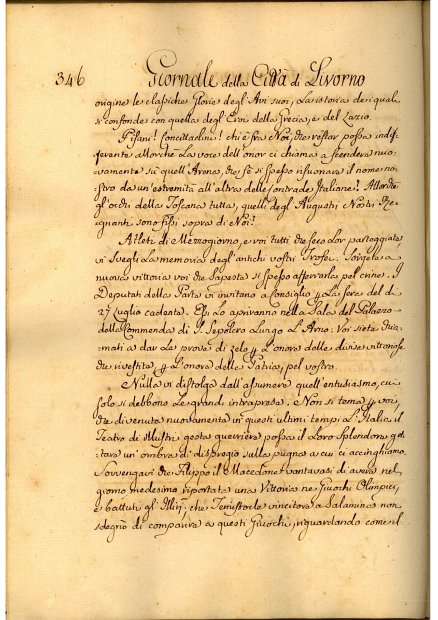 346 Giornale della Città di Livorno
origine le classiche Glorie degl' Avi suoi, La istoria dei quali
si confonde con quella degl' Eroi della Grecia, e del Lazio.
Pisani! Concittadini! chi è fra Noi, che restar possa indif-
ferente allorchè La voce dell' onor ci chiama a scendere nuo-
vamente su quell' Arena, che fè sì spesso risuonare il nome no-
stro da un' estremità all' altra delle Contrade Italiane? Allorchè
gl' occhi della Toscana tutta, quelli degl' Augusti Nostri Re-
gnanti sono fissi sopra di Noi?
Atleti di Mezzogiorno, e voi tutti che per Lor parteggiate
vi svegli La memoria degl' antichi vostri Trofei: Sorgete a
nuova vittoria voi che sapeste sì spesso afferrarla pel crine. I
Deputati della Parte vi invitano a Consiglio p La sera del dì
27 Luglio cadente. Essi Lo apriranno nella Sala del Palazzo
della Commenda di S. Sepolcro Lungo L' Arno: Voi siete chia-
mati a dar Le prove di zelo p L' onore delle divise vittoriose
che rivestite, p L' onore della Patria, pel vostro.
Nulla vi distolga dall' assumere quell' entusiasmo, cui
solo si debbono Le grandi intraprese. Non si tema p voi,
che divenuta nuovamente in questi ultimi tempi L' Italia, il
Teatro di illustri gesta guerriere possa il Loro Splendore get-
tare un' ombra di dispregio sulla pugna a cui ci accinghiamo.
Sovvengavi che Filippo il Macedone vantavasi di avere nel
giorno medesimo riportata una Vittoria ne Giuochi Olimpici,
e battuti gl' Illirj, che Temistocle vincitore a Salamina non
sdegnò di comparire a questi Giuochi, riguardando come il